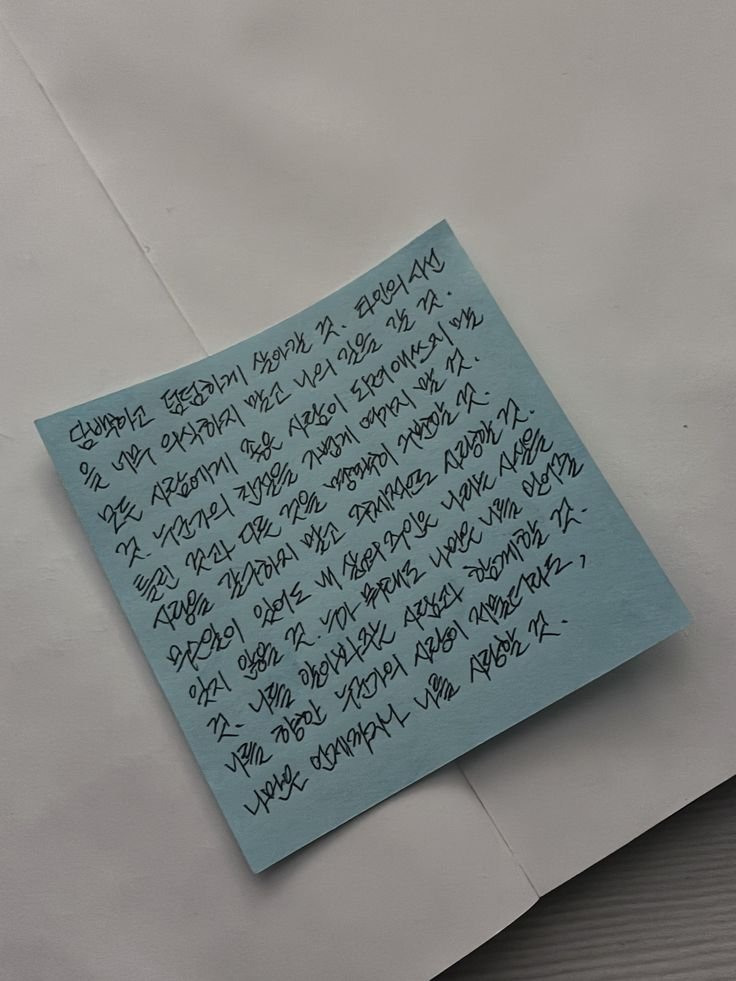 담백하고 담담하게 살아갈 것. 타인의 시선
을 너무 의식하지 말고 나의 길을 갈 것.
모든 사람에게 좋은 사람이 되려 애쓰지 말
것. 누군가의 진심을 가볍게 여기지 말 것.
틀린 것과 다른 것을 명확히 구분할 것.
사랑을 갈구하지 말고 주체적으로 사랑할 것.
무슨 일이 있어도 내 삶의 주인은 나라는 사실을
잊지 않을 것. 누가 뭐래도 나만은 나를 믿어줄
것. 나를 알아봐주는 사람과 함께할 것.
나를 향한 누군가의 사랑이 저물더라도,
나만은 언제까지나 나를 사랑할 것.